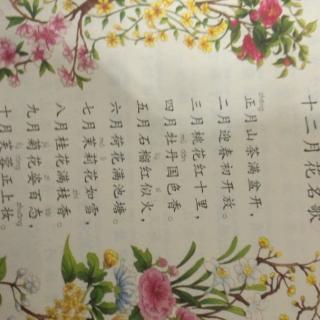 十二月花名歌
zhēng
正月山茶满盆开，
二月迎春初开放。
三月桃花红十里，
mǔ dān
四月牡丹国色香。
五月石榴红似火，
六月荷花满池塘。
mò lì
七月茉莉花如雪，
zhī
八月桂花满枝香。
九月菊花姿百态，
fú róng zhuāng
十月芙蓉正上妆。